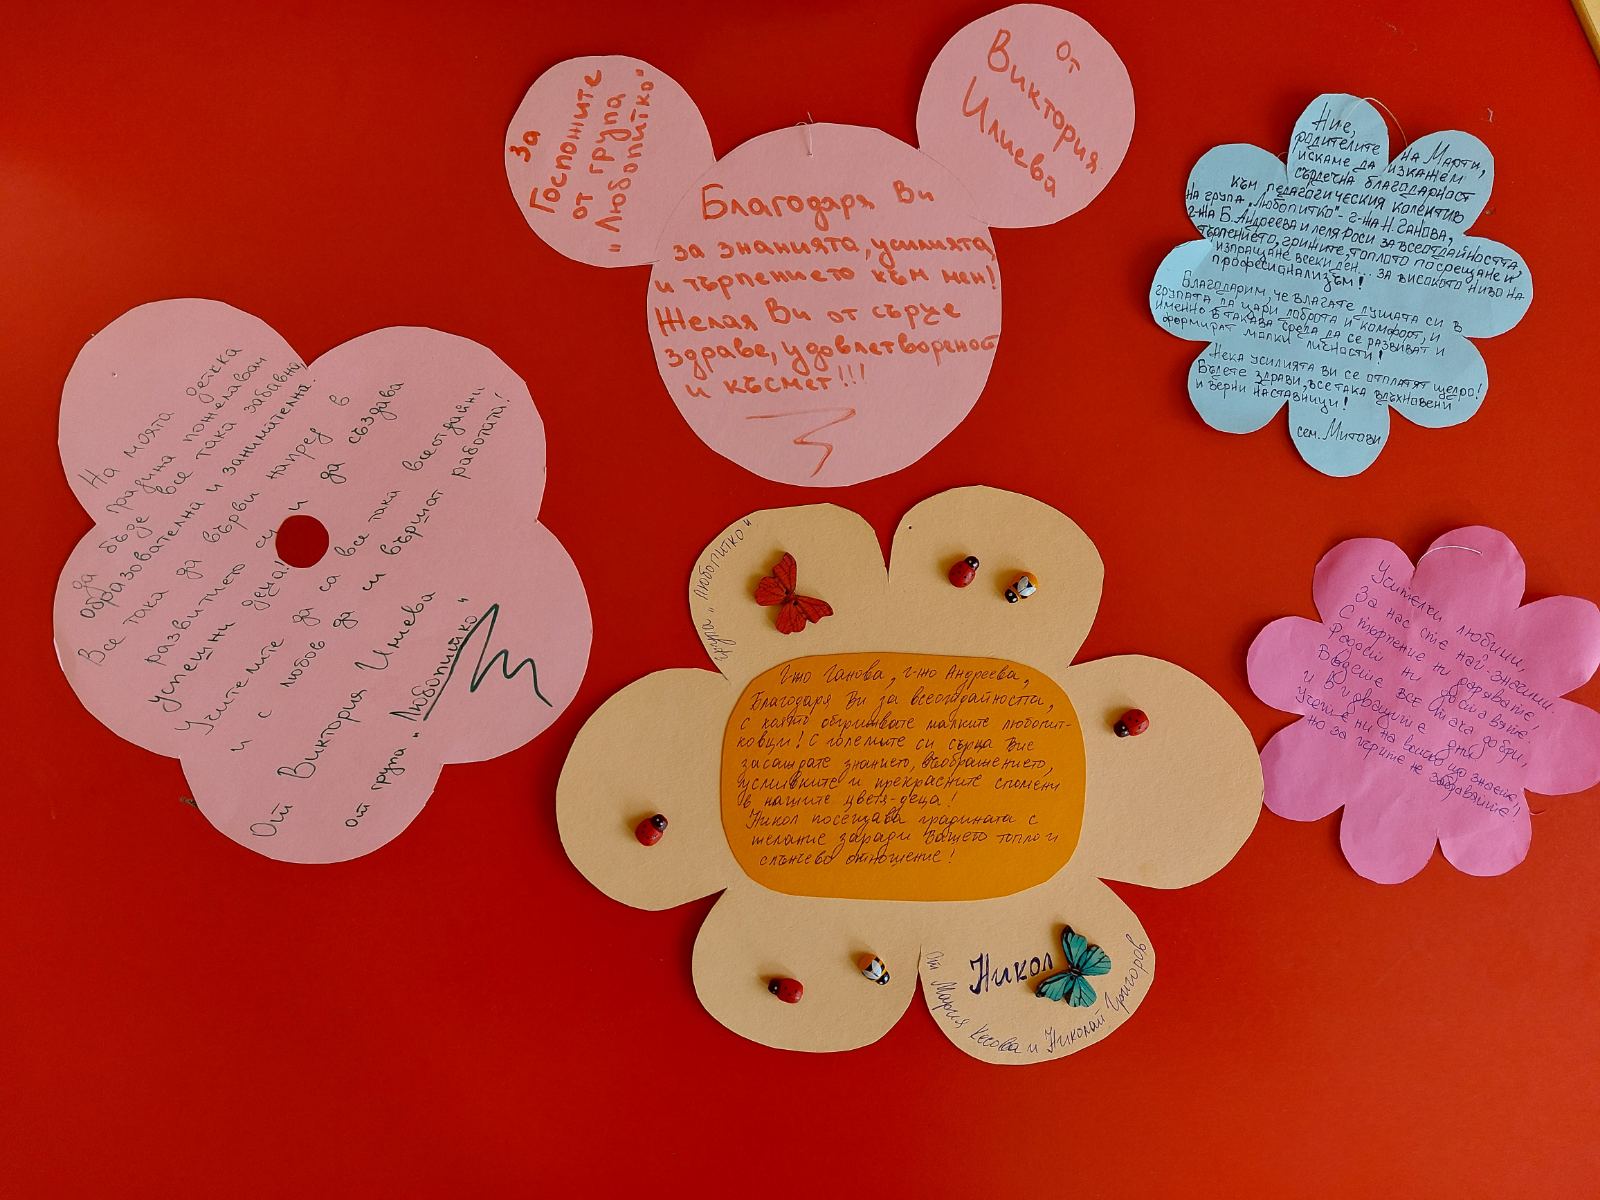 За
Госпожите
от група
"Любопитко"
От
Виктория
Илиева
Благодаря Ви
за знанията, усилията
и търпението към мен!
Желая Ви от сърце
здраве, удовлетвореност
и късмет!!!
Ние,
родителите на Марти,
искаме да изкажем
сърдечна благодарност
към педагогическия колектив
на група "Любопитко" - г-жа Н. Ганова,
г-жа Б. Андреева и леля Роси за всеотдайността,
търпението, грижите, топлото посрещане и
изпращане всеки ден... за високото ниво на
професионализъм!
Благодарим, че влагате душата си в
групата да цари доброта и комфорт, и
именно в такава среда да се развиват и
формират малки личности!
Нека усилията Ви се отплатят щедро!
Бъдете здрави, все така вдъхновени
и верни наставници!
сем. Митови
На моята детска
градина пожелавам
да бъде все така забавна,
образователна и занимателна.
Все така да върви напред в
развитието си и да създава
успешни деца!
Учителите да са все така всеотдайни
и с любов да си вършат работата!
От Виктория Илиева
от група "Любопитко"
група "Любопитко"
Г-жо Ганова, г-жо Андреева,
Благодаря Ви за всеотдайността,
с която обгрижвате малките любопит-
ковци! С големите си сърца Вие
засаждате знанието, въображението,
усмивките и прекрасните спомени
в нашите цветя-деца!
Никол посещава градината с
желание заради Вашето топло и
слънчево отношение!
Никол
От Мария Кесова и Николай Григоров
Учителки любими,
За нас сте най-значими.
С търпение ни дарявате,
Радост ни доставяте.
Бъдете все така добри,
и в идващите дни
Учете ни на всичко що знаете,
но за игрите не забравяйте!